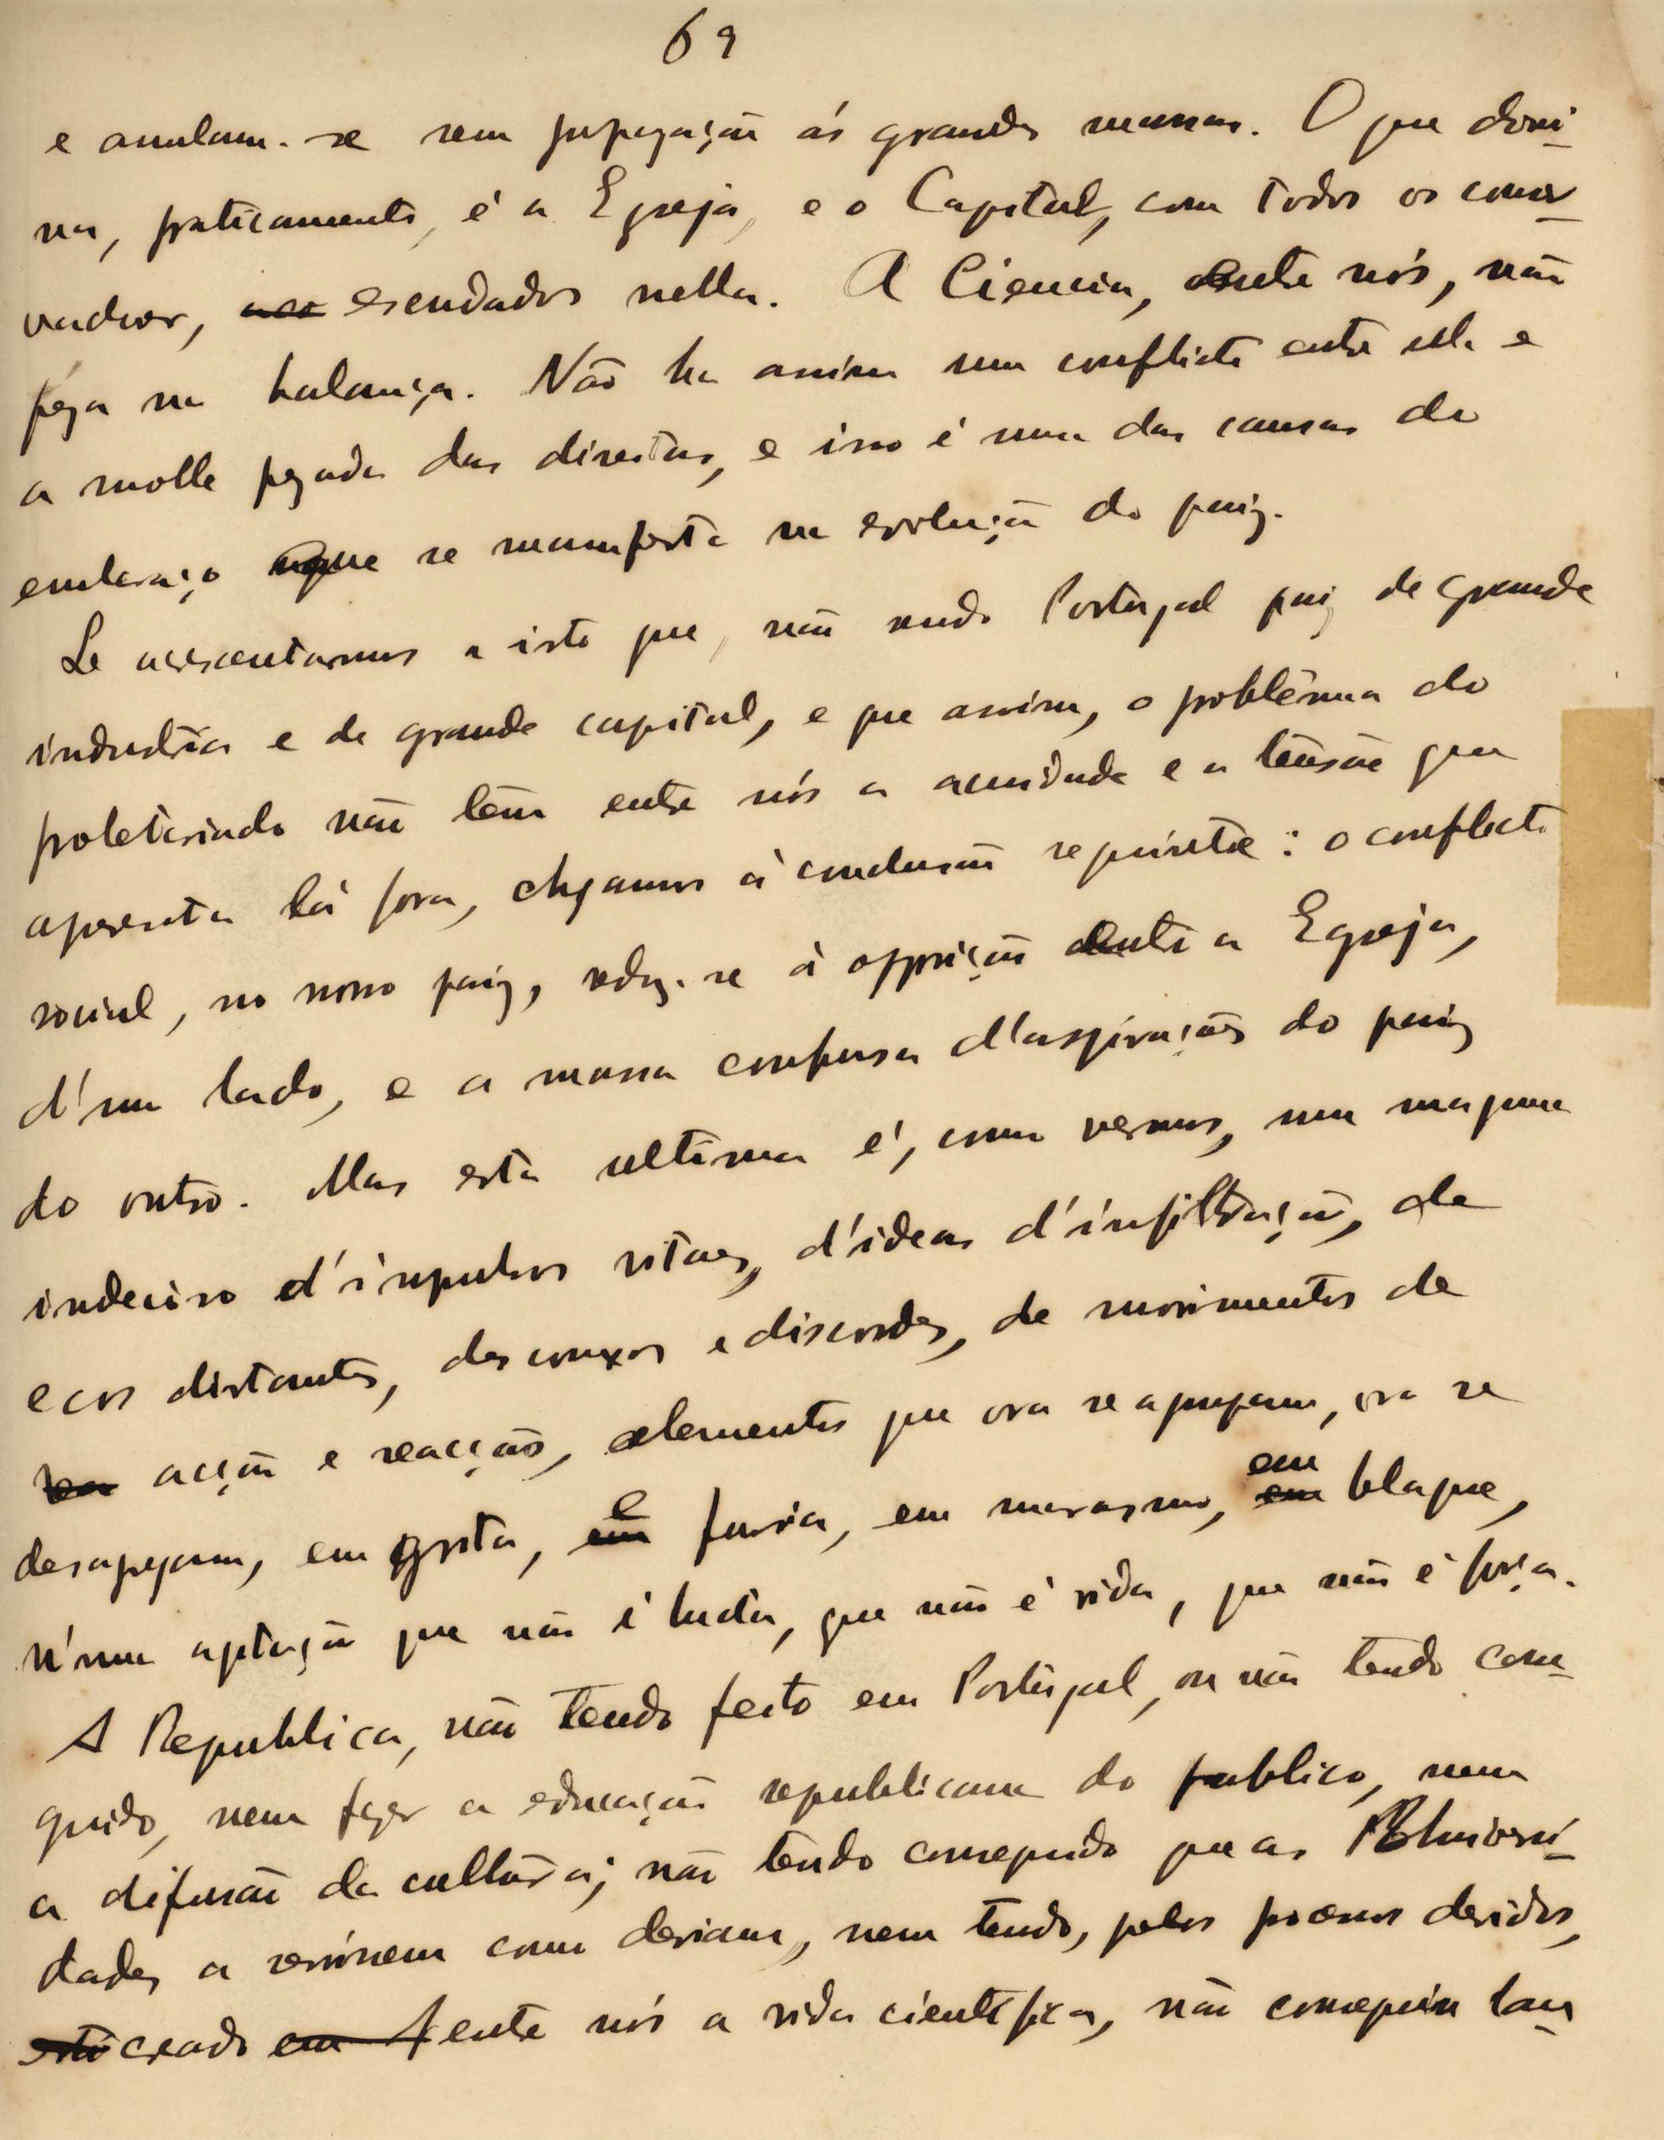 69
e anulam-se sem propagação ás grandes massas. O que domi-
na, praticamente, é a Egreja, e o Capital, com todos os conser-
vadores, escudados nella. A Ciencia, entre nós, não
péza na balança. Não ha assim um conflicto entre ella e
a molle pezada das direitas, e isso é uma das causas do
embaraço que se manifesta na evolução do paiz.
Se acrescentarmos a isto que, não sendo Portugal paiz de grande
industria e de grande capital, e que assim, o problêma do
proletariado não tem entre nós a acuidade e a tensão que
apresenta lá fora, chegamos á conclusão seguinte: o conflicto
social, no nosso paiz, reduz-se á opposição entre a Egreja,
d'um lado, e a massa confusa d'aspirações do paiz
do outro. Mas esta ultima é, como vemos, um magma
indeciso d'impulsos vitaes, d'ideas d'infiltração, de
ecos distantes, desconexos e discordes, de movimentos de
acção e reacção, elementos que ora se agregam, ora se
desagregam, em grita, e furia, em marasmo, em blague,
n'uma agitação que não é lucta, que não é vida, que não é força.
A Republica, não tendo feito em Portugal, ou não tendo conse-
guido, nem fazer a educação republicana do publico, nem
a difusão da cultura; não tendo conseguido que as Universi-
dades a servissem como deviam, nem tendo, pelos processos devidos,
creado entre nós a vida cientifica, não conseguiu lan-